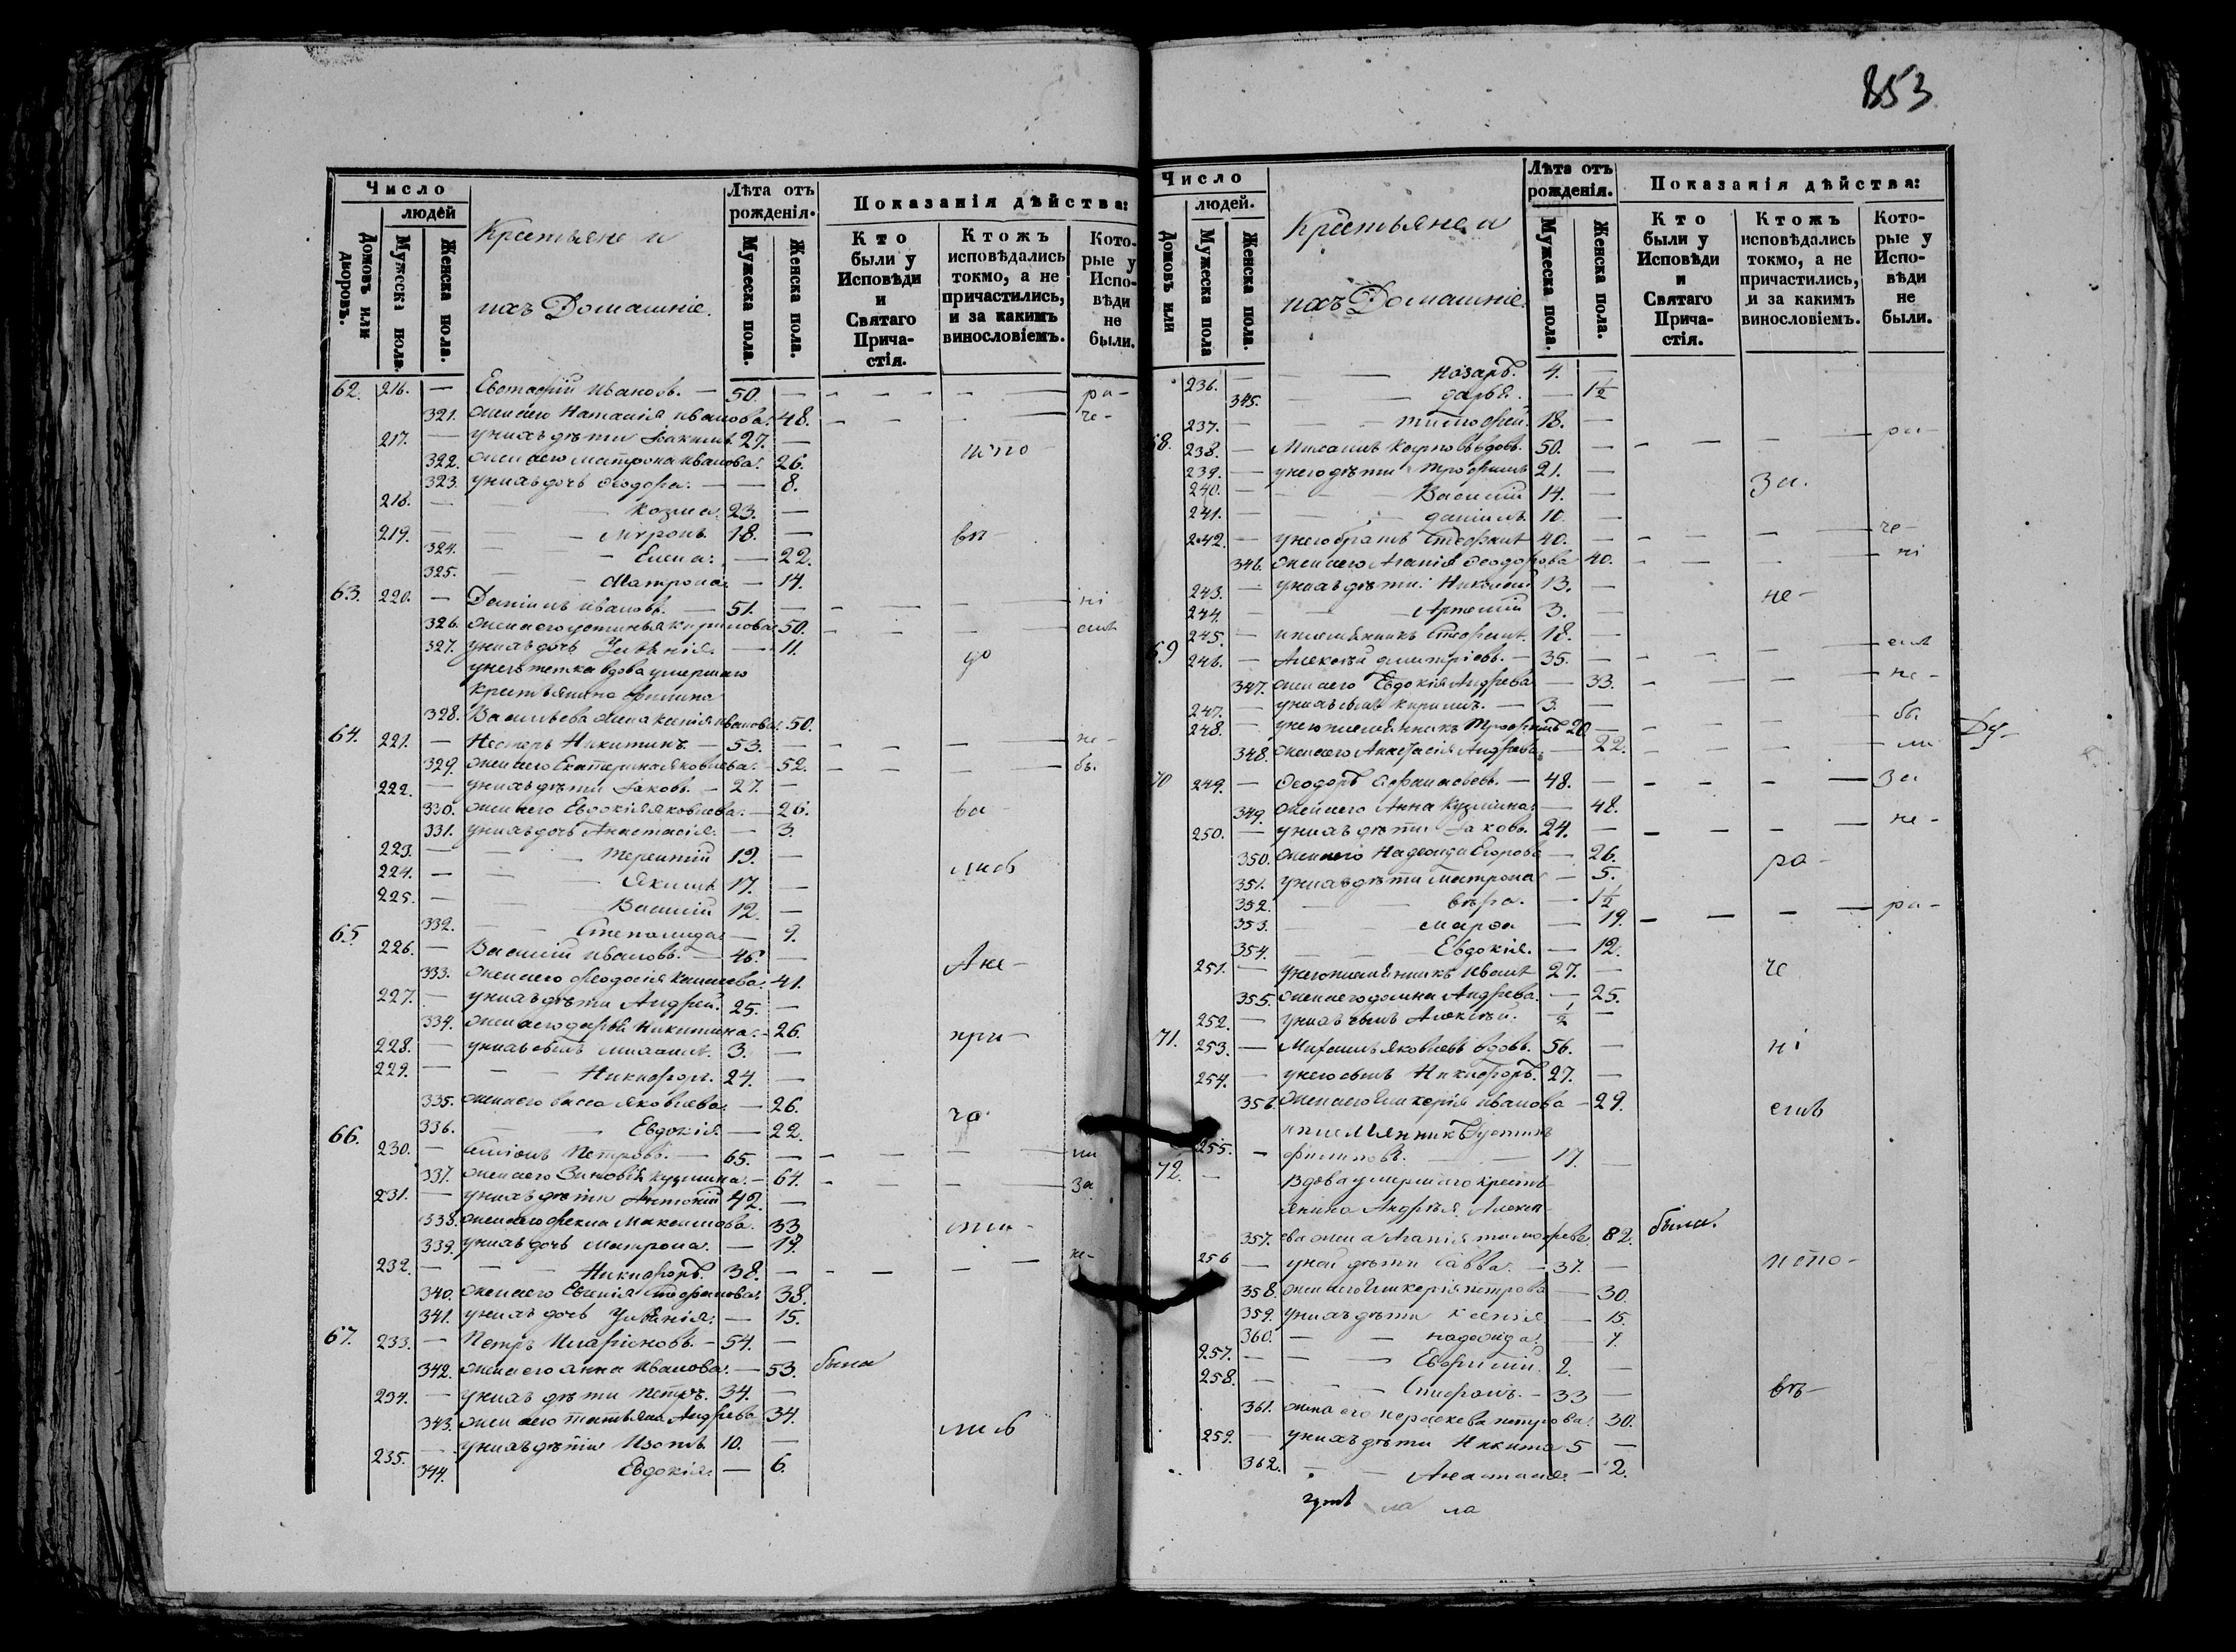 853
Число
людей
Домовъ или дворовъ.
Мужеска пола.
Женска пола.
Крестьяне и
ихъ Домашніе.
Лѣта отъ рожденія.
Мужеска пола.
Женска пола.
Показанія дѣйства:
Кто были у Исповѣди и Святаго Причастія.
Ктожъ исповѣдались токмо, а не причастились, и за какимъ винословіемъ.
Которые у Исповѣди не были.
62. 216. — Евстафій Ивановъ. — 50. — ра-
321. жена его Наталія Иванова. 48. че-
217. — у нихъ дѣти Іакимъ 27. —
322. жена его Матрона Иванова. 26. испо-
323. у нихъ дочь Ѳеодора. — 8.
218. — Козма. 23. —
219. — Миронъ 18. — въ-
324. Елена. — 22.
325. Матрона. — 14.
63. 220. — Даніилъ Ивановъ. — 51. — ні
326. жена его Устинья Кирилова. 50. емъ
327. у нихъ дочь Уліянія. — 11. до
у него тетка вдова умершаго
крестьянина Филипа
328. Васильева жена Ксенія Иванова. 50.
64. 221. — Несторъ Никитинъ. — 53. — не-
329. жена его Екатерина Яковлева. — 52. бы.
222. — у нихъ дѣти Іаковъ. — 27. —
330. жена его Евдокія Яковлева. — 26. ва-
331. у нихъ дочь Анастасія. — 3.
223. — Терентій 19. —
224. — Якимъ 17. — лись
225. — Василій 12. —
332. Степанида. — 9.
65. 226. — Василій Ивановъ. — 46. —
333. жена его Ѳеодосія 41. Ане-
227. — у нихъ дѣти Андрей. 25. —
334. жена его Дарья Никитина. — 26.
228. — у нихъ сынъ Михаилъ. 3. — при-
229. — Никифоръ. 24. —
335. жена его Васса Яковлева. — 26.
336. Евдокія. — 22. ча-
66. 230. — Симіонъ Петровъ. — 65. — ли
337. жена его Зиновья Кузмина. — 64. за
231. — у нихъ дѣти Антоній 42. —
338. жена его Фекла Максимова. 33 сти-
339. у нихъ дочь Матрона. — 19.
232. — Никифоръ. 38. — не-
340. жена его Евгенія Стефанова. 38.
341. у нихъ дочь Уліянія. — 15.
67. 233. — Петръ Иларіоновъ. — 54. —
342. жена его Анна Иванова. — 53. была
234. — у нихъ дѣти Петръ. 34. —
343. жена его Татьяна Андреева 34. лись
235. — у нихъ дѣти Изотъ 10. —
344. Евдокія. — 6.
Число
людей.
Домовъ или
Мужеска пола
Женска пола.
Крестьяне и
ихъ Домашніе.
Лѣта отъ рожденія.
Мужеска пола.
Женска пола.
Показанія дѣйства:
Кто были у Исповѣди и Святаго Причастія.
Ктожъ исповѣдались токмо, а не причастились, и за какимъ винословіемъ.
Которые у Исповѣди не были.
236. — Назаръ. 4. —
345. Дарья. — 1½
237. — Тимофей. 18. —
68. 238. — Михаилъ Карповъ вдовъ. 50. — ра-
239. — у него дѣти Трофимъ 21. —
240. — Василій 14. — За.
241. — Даніилъ. 10. —
242. — у него братъ Стефанъ 40. — че-
346. жена его Агапія Ѳеодорова 40. ні
243. — у нихъ дѣти: Николай 13. —
244. — Артемій 3. — не-
245. — племянникъ Стефанъ. 18. —
69 246. — Алексѣй Дмитріевъ. — 35. — емъ
347. жена его Евдокія Андреева — 33. не-
247. — у нихъ сынъ Кирилъ. — 3. —
248. — у него племянникъ Трофимъ 20 — бы
348. жена его Анастасія Андреева — 22. ли
Ду-
70 249. — Ѳеодоръ — 48. — За
349. жена его Анна Кузмина. — 48.
250. — у нихъ дѣти Іаковъ. 24. — не-
350. жена его Надежда Егорова — 26. ра-
351. у нихъ дѣти Матрона — 5.
352. Вѣра. — 1½
353. Марѳа — 19. ра-
354. Евдокія. — 12.
251. — у него племянникъ Иванъ 27. — че
355. жена его Домна Андреева. — 25.
252. — у нихъ сынъ Алексѣй. ½ —
71. 253. — Михаилъ Яковлевъ вдовъ. 56. — ні
254. — у него сынъ Никифоръ. 27. —
356. жена его Гликерія Иванова — 29. емъ
племянникъ Устинъ
255. — Филиповъ. 17. —
72. — Вдова умершаго кресть-
янина Андрѣя Алексѣ-
357. ева жена Агапія Тимофеева. 82. была.
256 — у ней дѣти Савва. — 37. — испо-
358. жена его Гликерія Петрова — 30.
359. у нихъ дѣти Ксенія — 15.
360. — Надежда. — 7.
257. — Евфимій. 2. —
258. — Стефанъ. — 33 — въ-
361. жена его Параскева Петрова. 30.
259. — у нихъ дѣти Никита 5 —
362. Анастасія. — 2.